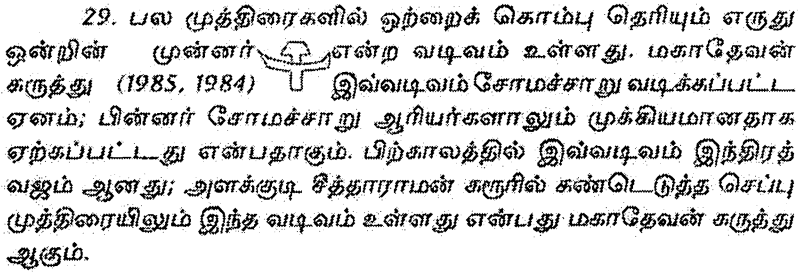 29. பல முத்திரைகளில் ஒற்றைக் கொம்பு தெரியும் எருது
ஒன்றின் முன்னர் என்ற வடிவம் உள்ளது. மகாதேவன்
கருத்து (1985, 1984) இவ்வடிவம் சோமச்சாறு வடிக்கப்பட்ட
ஏனம்; பின்னர் சோமச்சாறு ஆரியர்களாலும் முக்கியமானதாக
ஏற்கப்பட்டது என்பதாகும். பிற்காலத்தில் இவ்வடிவம் இந்திரத்
வஜம் ஆனது; அளக்குடி சீத்தாராமன் கரூரில் கண்டெடுத்த செப்பு
முத்திரையிலும் இந்த வடிவம் உள்ளது என்பது மகாதேவன் கருத்து
ஆகும்.